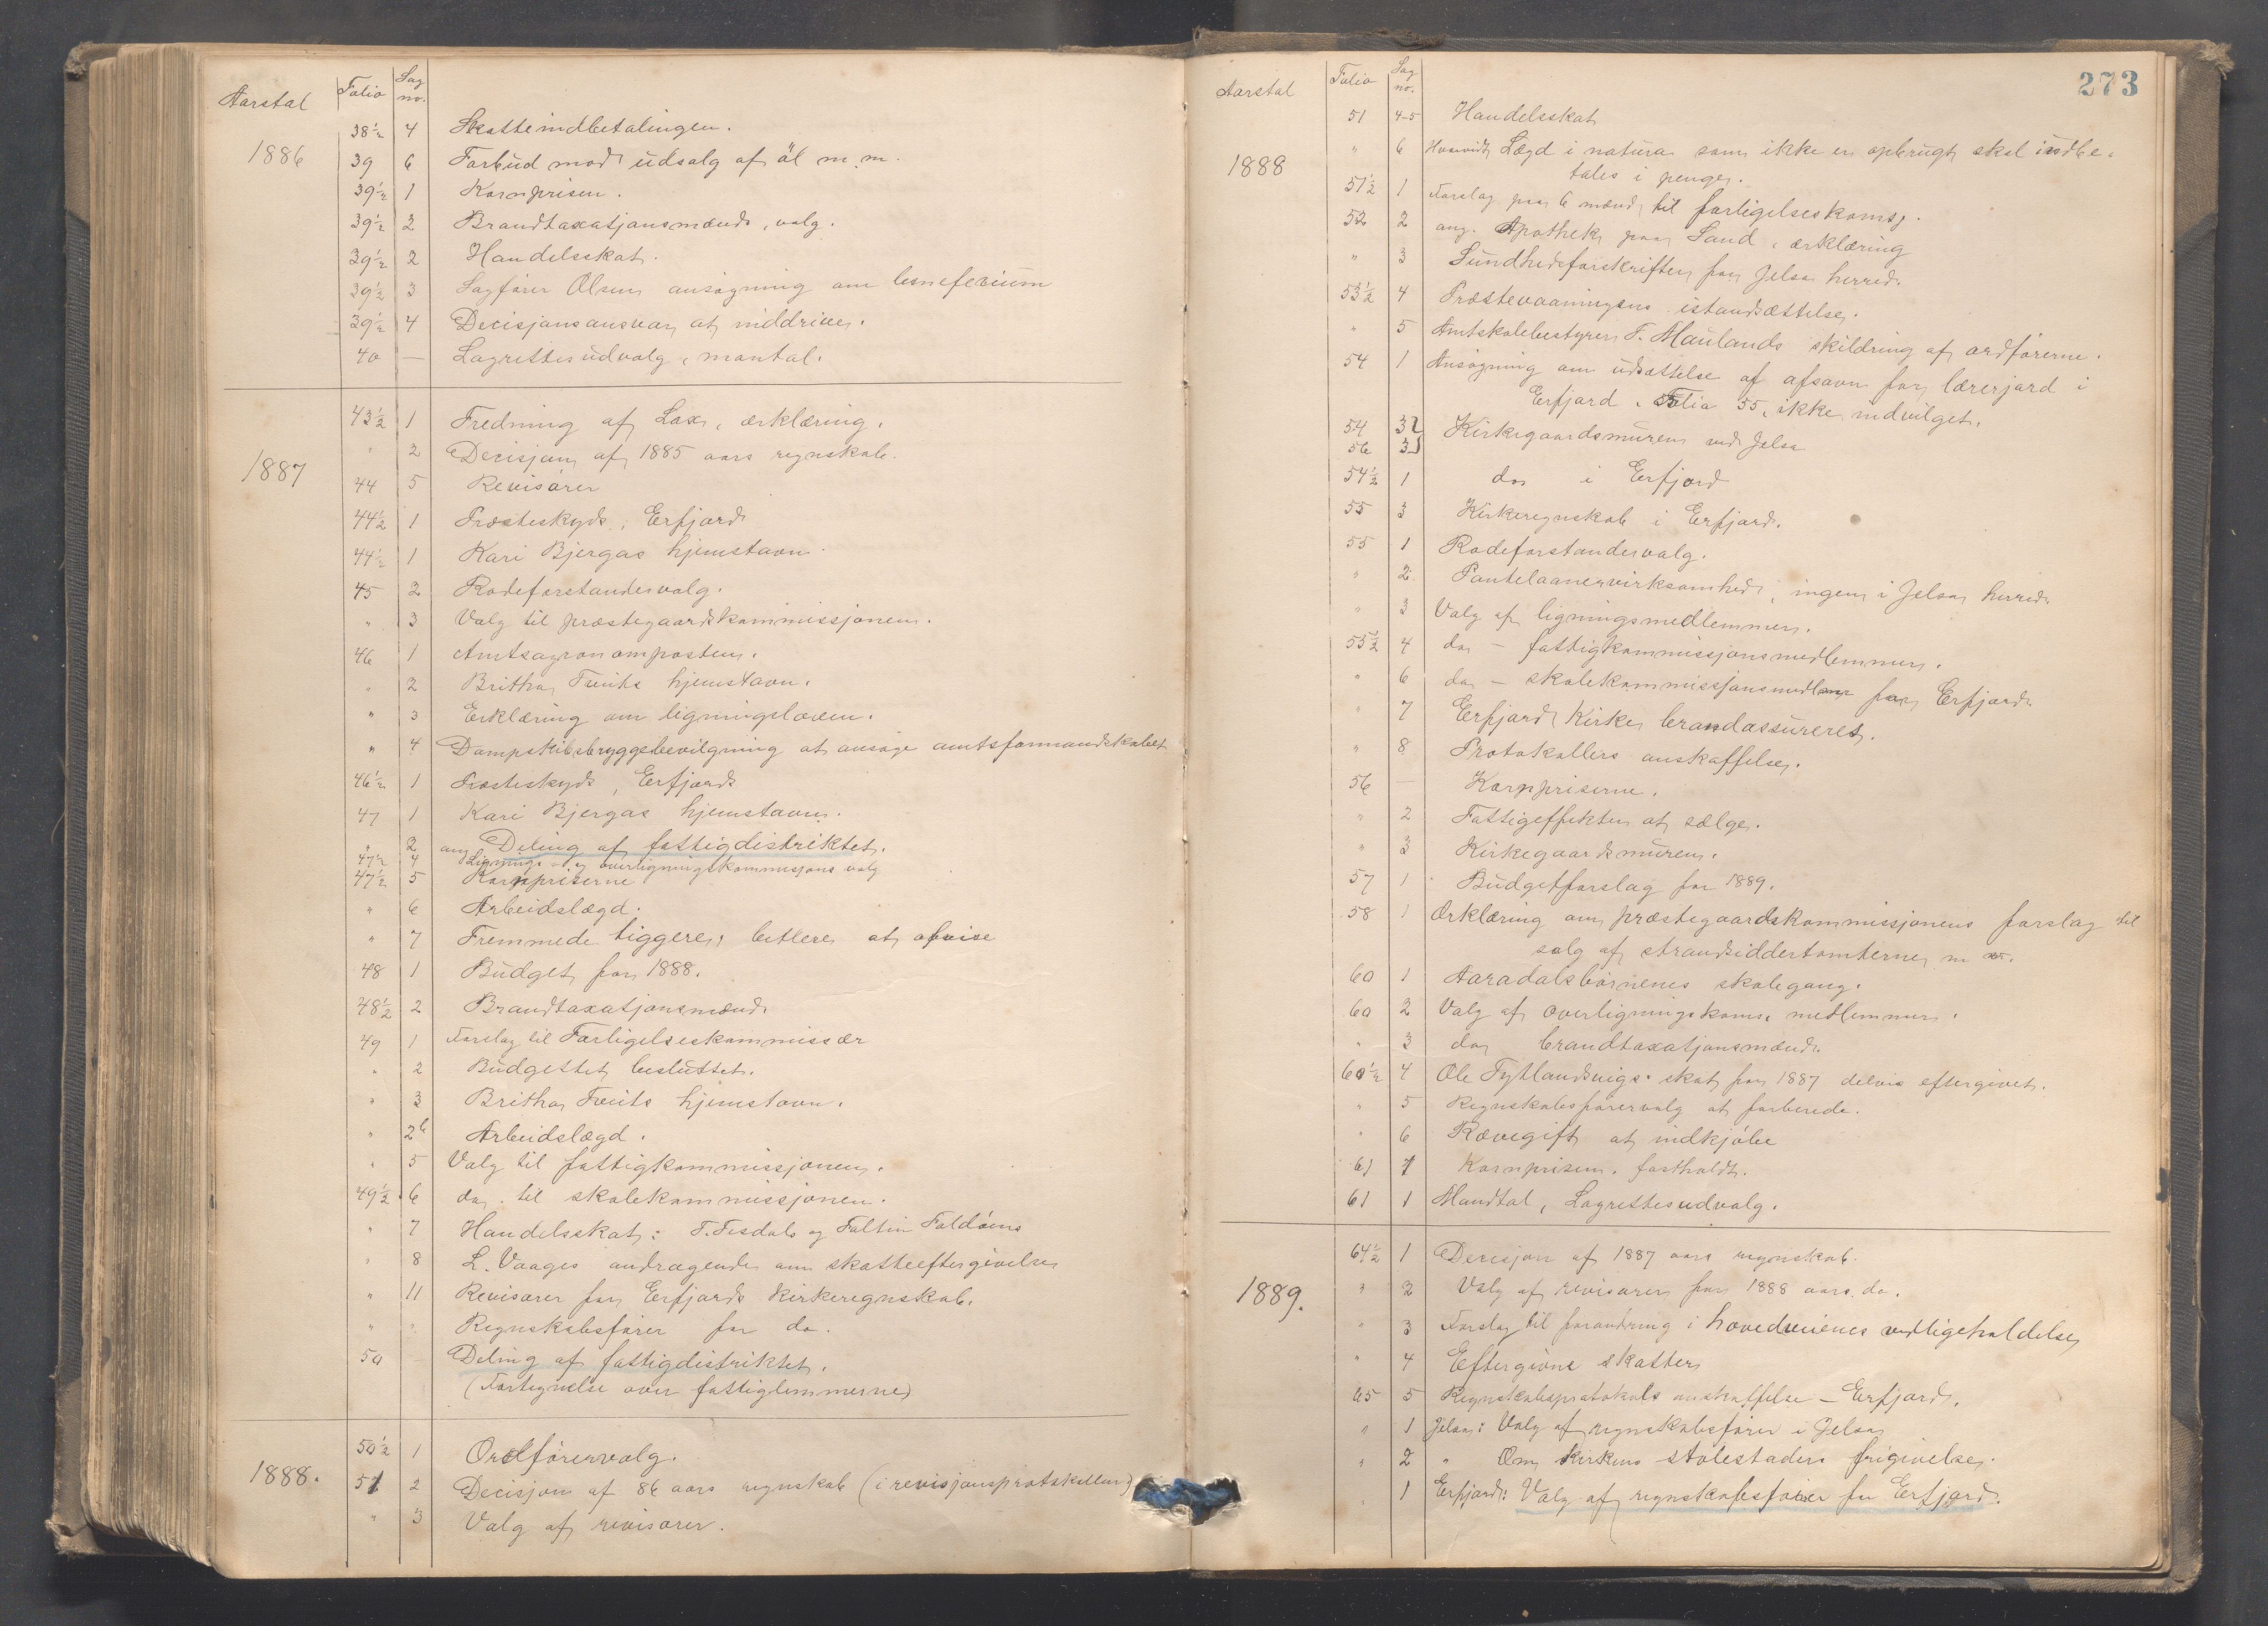 Aarstal Folio Sag no.
1886
38½ 4 Skatteindbetalingen.
39 6 Forbud mod udsalg af öl m.m.
39½ 1 Kornprisen.
39½ 2 Brandtaxatjonsmænd, valg.
39½ 2 Handelsskat.
39½ 3 Sagfører Olsens ansøgning om beneficium
39½ 4 Decisjonsansvar at inddrives.
40 — Lagrettesudvalg, mantal.
1887
43½ 1 Fredning af Lax, erklæring.
" 2 Decisjon af 1885 aars regnskab.
44 5 Revisorer
44½ 1 Præsteskyds, Erfjord
44½ 1 Kari Bjergas hjemstavn.
45 2 Rodeforstandervalg.
" 3 Valg til præstegaardskommissjonen.
46 1 Amtsagronomposten.
" 2 Britha Tveits hjemstavn.
" 3 Erklæring om ligningsloven.
" 4 Dampskibsbryggebevilgning at ansøge amtsformandskabet
46½ 1 Præsteskyds, Erfjord
47 1 Kari Bjergas hjemstavn.
" 2 ang Deling af fattigdistriktet.
47½ 4 Lignings- og overligningskommissjons valg
47½ 5 Kornpriserne
" 6 Arbeidslægd.
" 7 Fremmede tiggere, betlere at afvise
48 1 Budget for 1888.
48½ 2 Brandtaxatjonsmænd.
49 1 Forslag til Forligelseskommissær
" 2 Budgettet besluttet.
" 3 Britha Tveits hjemstavn.
" 2b Arbeidslægd.
" 5 Valg til fattigkommissjonen.
49½ 6 do. til skolekommissjonen.
" 7 Handelsskat: T. Tesdal og Faltin Foldøens
" 8 L. Vaages andragende om skatteeftergivelse
" 11 Revisorer for Erfjords Kirkeregnskab.
" " Regnskabsfører for do.
50 — Deling af fattigdistriktet.
(Fortegnelse over fattiglemmerne)
1888.
50½ 1 Ordførervalg.
51 2 Decisjon af 86 aars regnskab (i revisjonsprotokollen)
" 3 Valg af revisorer.
273
Aarstal Folio Sag no.
1888
51 4-5 Handelsskat
" 6 Hvorvidt Lægd i natura som ikke er opbrugt skal indbe-
tales i penger.
51½ 1 Forslag paa 6 mænd til forligelseskoms.
52 2 ang. Apothek paa Sand, erklæring
" 3 Sundhedsforskrifter for Jelsa herred.
53½ 4 Præstevaaningens istandsættelse.
" 5 Amtskolebestyrer T. Maulands skildring af ordførerne.
54 1 Ansøgning om udsættelse af afsavn for lærerjord i
Erfjord. Folio 55, ikke indvilget.
54 32
56 3 Kirkegaardsmuren ved Jelsa
54½ 1 do i Erfjord
55 3 Kirkeregnskab i Erfjord.
55 1 Rodeforstandervalg.
" 2 Pantelaanervirksomhed, ingen i Jelsa herred.
" 3 Valg af ligningsmedlemmer.
55½ 4 do — fattigkommissjonsmedlemmer.
" 6 do — skolekommissjonsmedlem for Erfjord.
" 7 Erfjord Kirke brandassureret.
" 8 Protokollers anskaffelse.
56 — Kornpriserne.
" 2 Fattigeffekter at sælge.
" 3 Kirkegaardsmuren.
57 1 Budgetforslag for 1889.
58 1 Erklæring om præstegaardskommissjonens forslag til
salg af strandsiddertomterne m. v.
60 1 Aaradalsbørnenes skolegang.
60 2 Valg af overligningskoms. medlemmer.
" 3 do brandtaxatjonsmænd.
60½ 4 Ole Tytlandsvigs skat for 1887 delvis eftergivet.
" 5 Regnskabsførervalg at forberede.
" 6 Rævegift at indkjøbe
61 7 Kornprisen, fastholdt.
61 1 Mandtal, Lagrettesudvalg.
1889.
64½ 1 Decisjon af 1887 aars regnskab.
" 2 Valg af revisorer for 1888 aars do.
" 3 Forslag til forandring i hovedveienes vedligeholdelse
" 4 Eftergivne skatter
65 5 Regnskabsprotokols anskaffelse — Erfjord.
" 1 Jelsa: Valg af regnskabsfører i Jelsa
" 2 " Om kirkens stolestaders frigivelse.
" 1 Erfjord: Valg af regnskabsfører for Erfjord.